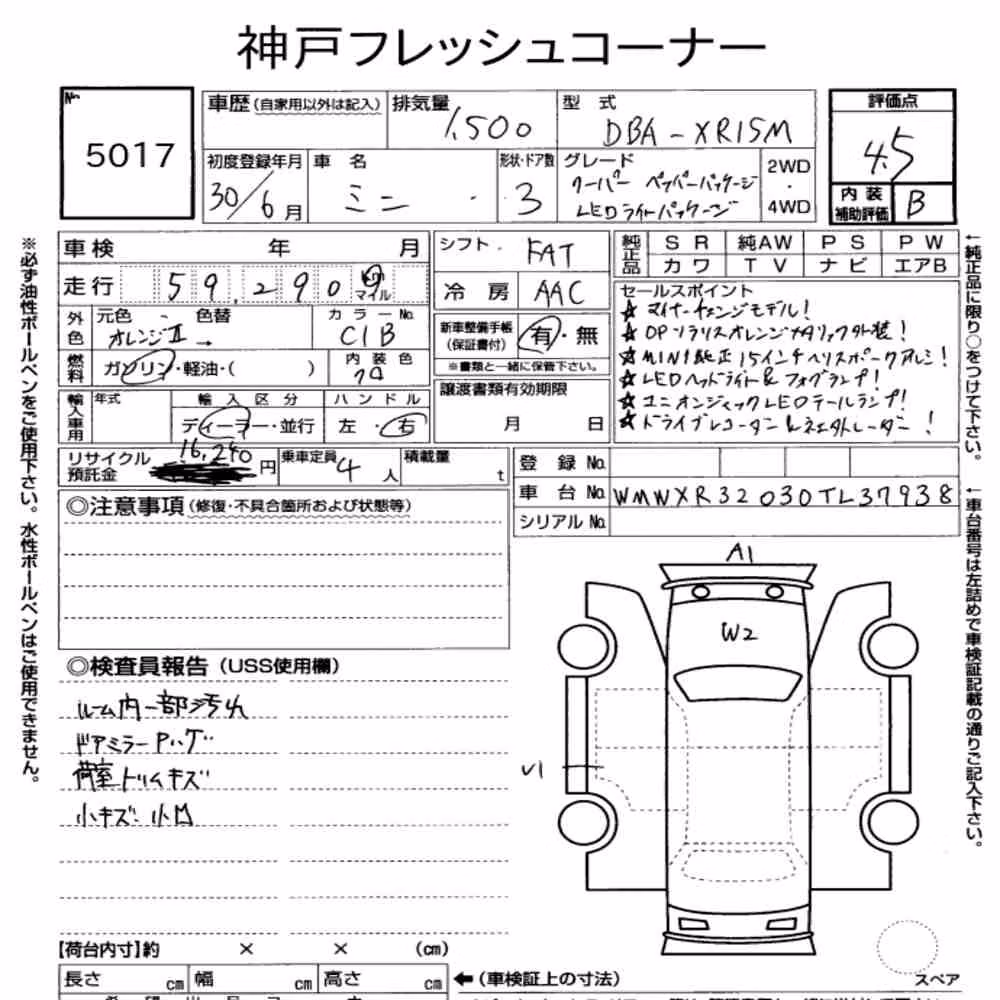 神戸フレッシュコーナー
No. 5017
車歴 (自家用以外は記入)
排気量 1,500
型式 DBA-XR15M
評価点 4.5
初度登録年月 30/6月
車名 ミニ
形状・ドア数 3
グレード クーパー ペッパーパッケージ
LEDライトパッケージ
2WD・4WD
内装補助評価 B
車検 年 月
シフト FAT
純正品 SR 純AW PS PW
カワ TV ナビ エアB
走行 59,290 km マイル
冷房 AAC
セールスポイント
☆マイナーチェンジモデル!
☆OPソラリスオレンジメタリック外装!
☆MINI純正15インチヘリスポークアルミ!
☆LEDヘッドライト&フォグランプ!
☆ユニオンジャックLEDテールランプ!
☆ドライブレコーダー&ネクストレーダー!
外色 元色 色替
オレンジⅡ →
カラーNo. C1B
新車整備手帳(保証書付) 有・無
※書類と一緒に保管下さい。
燃料 ガソリン・軽油・( )
内装色 クロ
譲渡書類有効期限
月 日
輸入車用 年式 輸入区分 ハンドル
ディーラー・並行 左・右
リサイクル預託金 16,240 円
乗車定員 4人
積載量 t
登録No.
車台No. WMWXR32030TL37938
シリアルNo.
◎注意事項 (修復・不具合箇所および状態等)
◎検査員報告 (USS使用欄)
ルーム内一部汚れ
ドアミラーPハゲ
荷室トリムキズ
小キズ 小凹
A1
W2
U1
【荷台内寸】約 × × (cm)
長さ cm 幅 cm 高さ cm
←(車検証上の寸法)
スペア
※必ず油性ボールペンをご使用下さい。水性ボールペンはご使用できません。
←純正品に限り○をつけて下さい。
←車台番号は左詰めで車検証記載の通りご記入下さい。